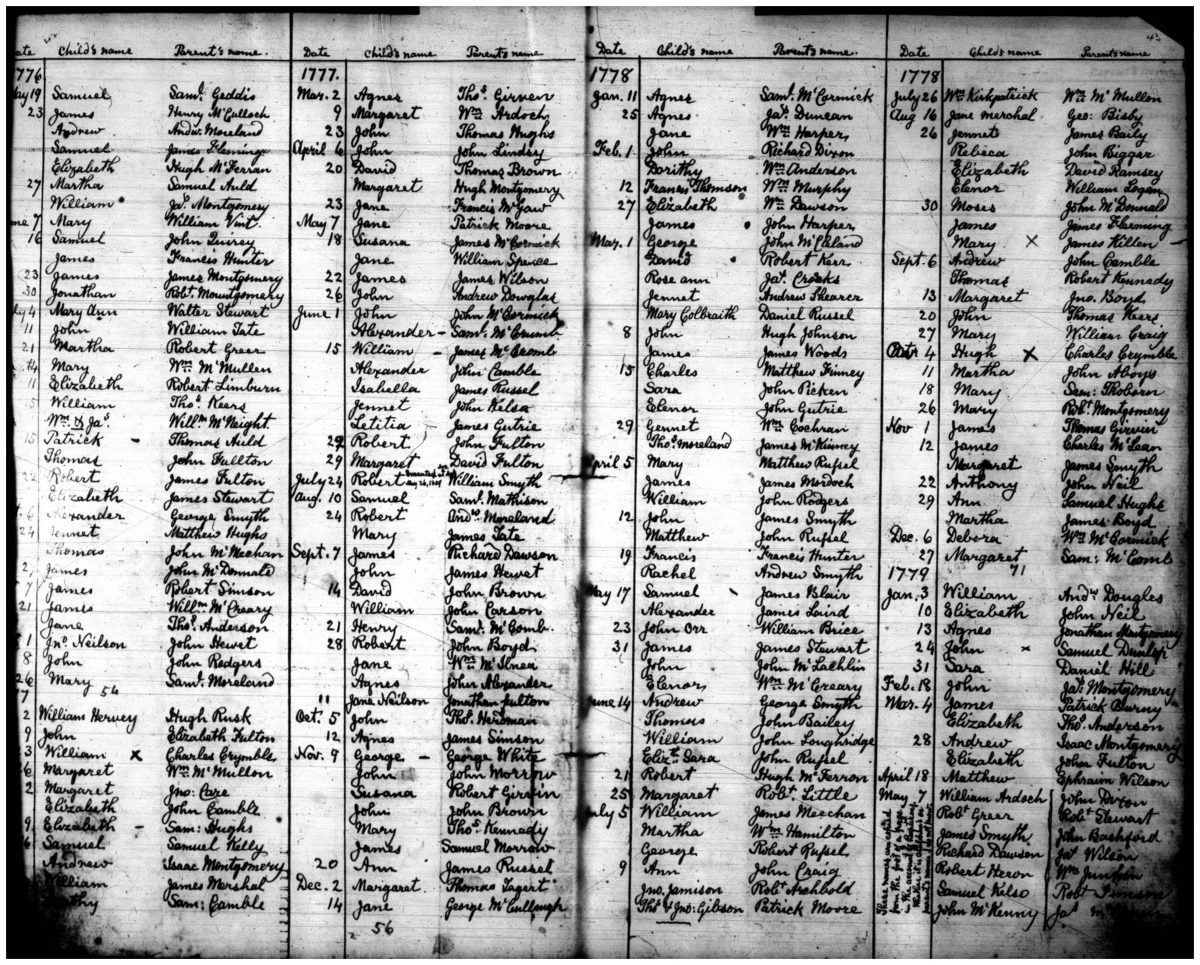 ate Child's name Parent's name.
1776
ay 19 Samuel Saml. Geddis
23 James Henry McCulloch
Andrew Andw. Moreland
Samuel James Fleming
Elizabeth Hugh McFerran
27 Martha Samuel Auld
William Jas. Montgomery
ne 7 Mary William Vint
16 Samuel John Quirey
James Francis Hunter
23 James James Montgomery
30 Jonathan Robt. Mountgomery
ly 4 Mary Ann Walter Stewart
11 John William Tate
21 Martha Robert Greer
14 Mary Wm McMullen
11 Elizabeth Robert Limburn
15 William Thos. Keers
Wm & Jas. Willm McNeight
15 Patrick - Thomas Auld
Thomas John Fullton
22 Robert James Fulton
Elizabeth James Stewart
t. 6 Alexander George Smyth
24 Jennet Matthew Hughs
Thomas John McMeehan
2 James John McDonnald
7 James Robert Simson
21 James Willm McCreary
Jane Thos. Anderson
1 Jno. Neilson John Hewet
8 John John Rodgers
26 Mary Saml. Moreland
54
77
2 William Hervey Hugh Rusk
9 John Elizabeth Fulton
3 William x Charles Crymble
26 Margaret Wm McMullon
2 Margaret Jno: Care
Elizabeth John Camble
9. Elizabeth - Sam: Hughs
6 Samuel Samuel Kelly
Andrew Isaac Montgomery
William James Marshal
thy Sam: Camble
Date Child's name Parent's name
1777.
Mar. 2 Agnes Thos. Girven
9 Margaret Wm Ardoch
23 John Thomas Hughs
April 6 John John Lindsy
20 David Thomas Brown
Margaret Hugh Montgomery
23 Jane Francis McGaw
May 7 Jane Patrick Moore
18 Susana James McCormick
Jane William Spence
22 James James Wilson
26 John Andrew Douglas
June 1 John John McCormick
Alexander - Saml. McCrumb
15 William - James McCromb
Alexander John Camble
Isabella James Russel
Jennet John Kelsa
Letitia - James Gutrie
22 Robert John Fulton
29 Margaret David Fulton
July 24 Robert William Smyth
Aug. 10 Samuel Saml. Mathison
24 Robert Andw. Moreland
Mary James Tate
Sept. 7 James Richard Dawson
John James Hewet
14 David John Brown
William John Carson
21 Henry Saml. McComb.
28 Robert John Boyd
Jane Wm McIlnea
Agnes John Alexander
11 Jane Neilson Jonathan Fulton
Oct. 5 John Thos. Herdman
12 Agnes James Simson
Nov. 9 George - George White
John John Morrow
Susana Robert Girvin
John John Brown
Mary Thos. Kennedy
James Samuel Morrow
20 Ann James Russel
Dec. 2 Margaret Thomas Tagert
14 Jane George McCullough
56
Date Child's name Parent's name.
1778
Jan. 11 Agnes Saml. McCormick
25 Agnes Jas. Duncan
Jane Wm Harper
Feb. 1 John Richard Dixon
Dorithy Wm Anderson
12 Francis Thomson Wm Murphy
27 Elizabeth Wm Dawson
James John Harper
Mar. 1 George John McCleland
David Robert Kerr
Rose ann Jas. Crooks
Jennet Andrew Shearer
Mary Colbraith Daniel Russel
8 John Hugh Johnson
James James Woods
15 Charles Matthew Finney
Sara John Picken
Elenor John Gutrie
29 Gennet Wm Cochran
Thos. Moreland James McKinney
April 5 Mary Matthew Russel
James James Mordoch
William John Rodgers
12 John James Smyth
Matthew John Russel
19 Francis Francis Hunter
Rachel Andrew Smyth
May 17 Samuel James Blair
Alexander James Laird
23 John Orr William Brice
31 James James Stewart
John John McLachlin
Elenor Wm McCreary
June 14 Andrew George Smyth
Thomas John Bailey
William John Loughridge
Elizth Sara John Russel
21 Robert Hugh McFerron
25 Margaret Robt. Little
July 5 William James Meechan
Martha Wm Hamilton
George Robert Russel
9 Ann John Craig
Jno. Jamison Robt. Archbold
Thos. & Jno: Gibson Patrick Moore
Date Child's name Parent's name
1778
July 26 Wm Kirkpatrick Wm McMullon
Aug 16 Jane Merchal Geo: Bisby
26 Jennet James Baily
Rebeca John Bigger
Elizabeth David Ramsey
Elenor William Logan
30 Moses John McDonnald
James James Fleeming
Mary x James Killen
Sept. 6 Andrew John Camble
Thomas Robert Kennedy
13 Margaret Jno. Boyd
20 John Thomas Keers
27 Mary William Craig
Oct 4 Hugh x Charles Crymble
11 Martha John Aboys
18 Mary Sam: Thoborn
26 Mary Robt. Montgomery
Nov 1 James Thomas Girvin
12 James Charles McLean
Margaret James Smyth
22 Anthony John Neil
29 Ann Samuel Hughs
Martha James Boyd
Dec. 6 Debora Wm McCormick
27 Margaret Sam: McComb
1779 71
Jan. 3 William Andw Dougles
10 Elizabeth John Neil
13 Agnes Jonathan Montgomery
24 John x Samuel Dunlop
31 Sara Daniel Hill
Feb. 18 John Jas. Montgomery
Mar. 4 James Patrick Burny
Elizabeth Thos. Anderson
28 Andrew Isaac Montgomery
Elizabeth John Fulton
April 18 Matthew Ephraim Wilson
May 7 William Ardoch John Dixon
Robt. Greer Robt. Stewart
James Smyth John Bashford
Richard Dawson Jas. Wilson
Robert Heron Wm Junkin
Samuel Kelso Robt. Simson
John McKenny Jas.